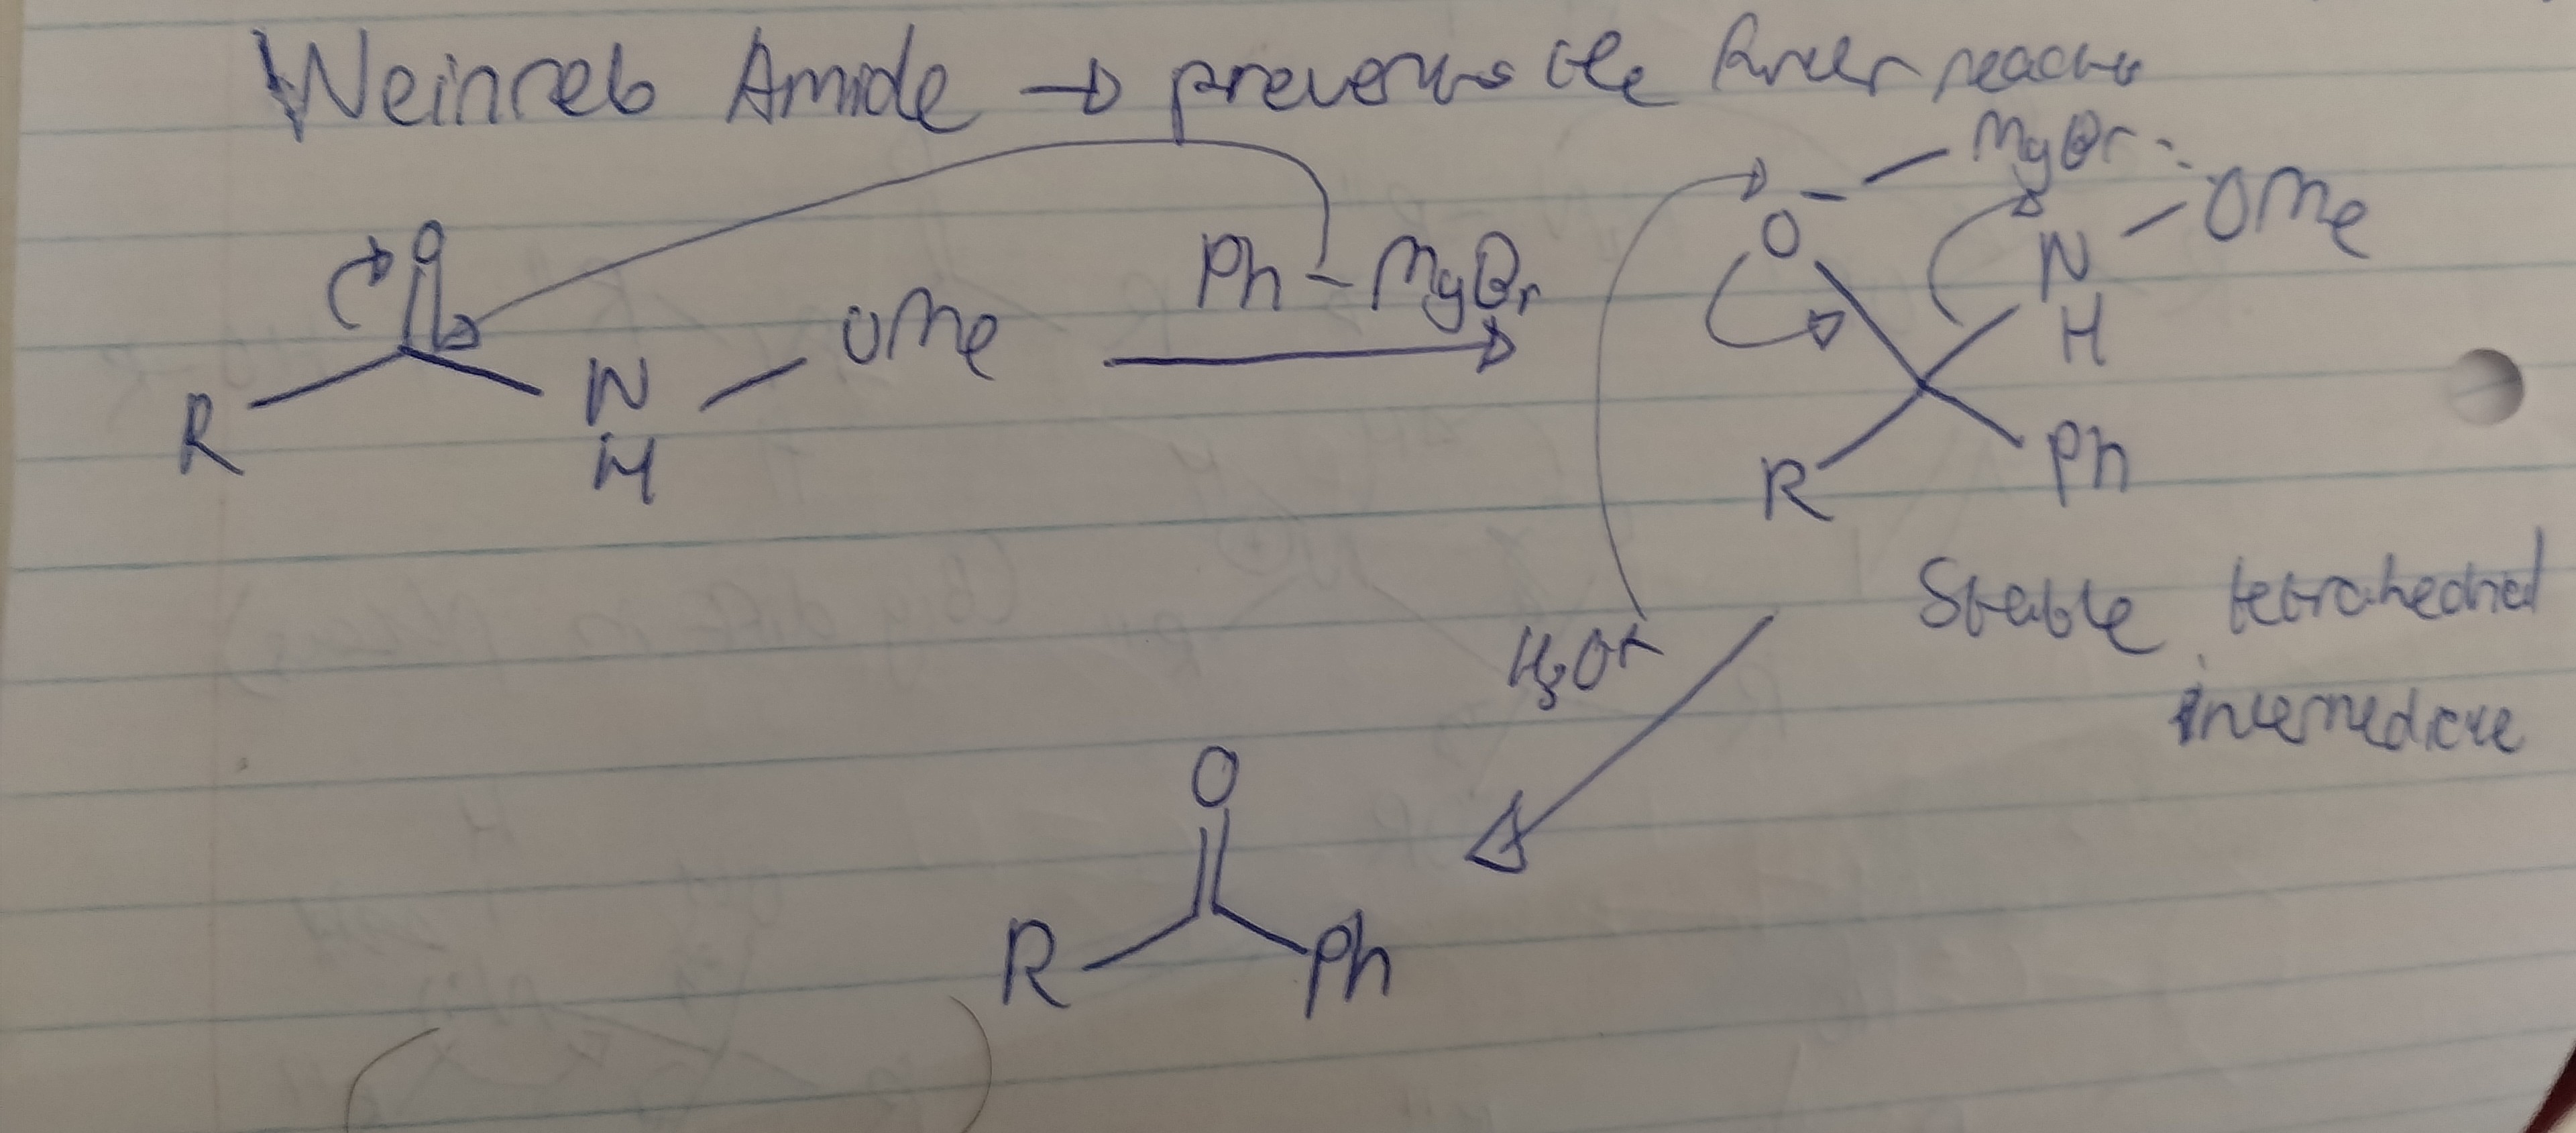 Weinreb Amide → prevents the further reaction
O
R
N
H
OMe
Ph-MgBr
O⁻
MgBr
N
H
OMe
R
Ph
Stable tetrahedral
intermediate
H₃O+
O
R
Ph